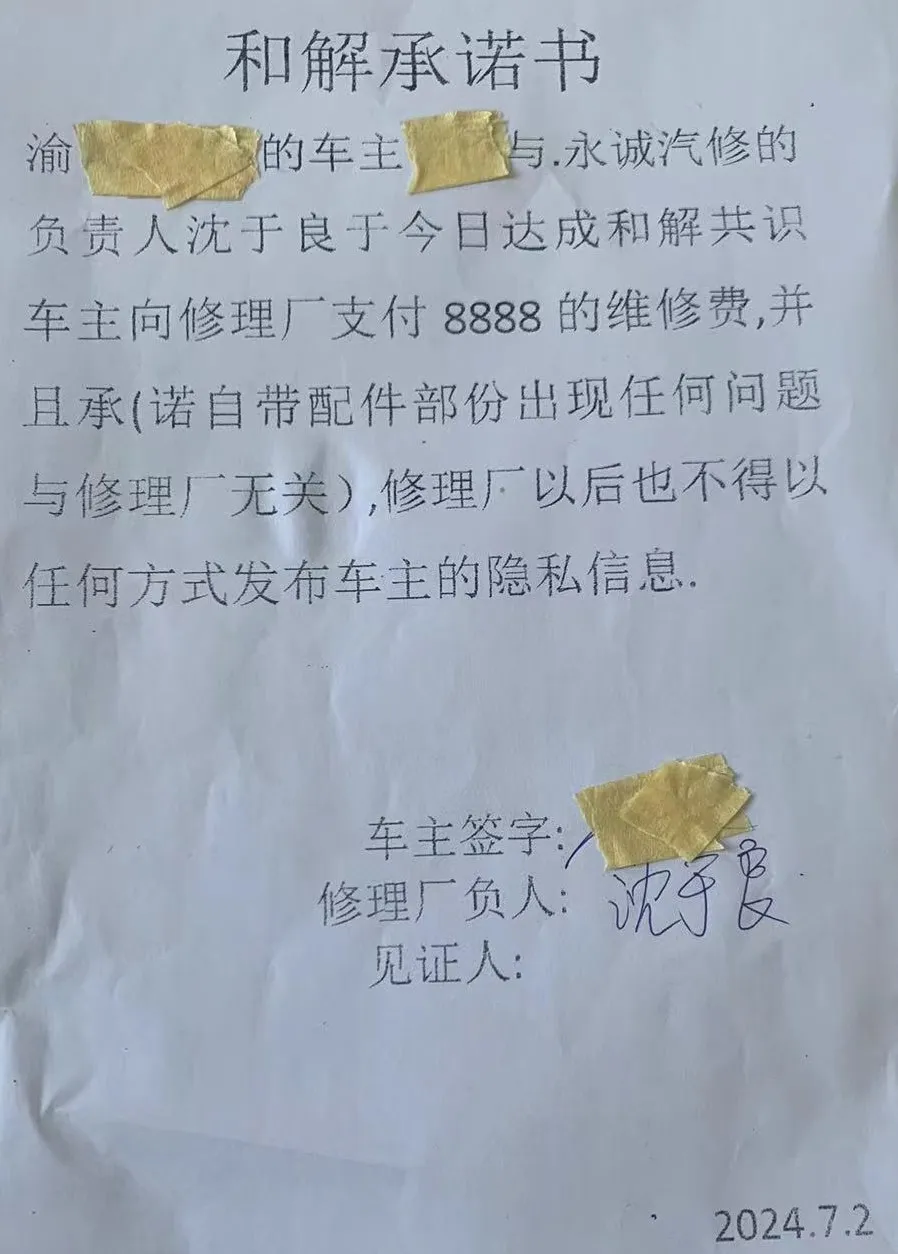 和解承诺书
渝 的车主 与.永诚汽修的
负责人沈于良于今日达成和解共识
车主向修理厂支付 8888 的维修费,并
且承(诺自带配件部份出现任何问题
与修理厂无关),修理厂以后也不得以
任何方式发布车主的隐私信息.
车主签字:
修理厂负人: 沈于良
见证人:
2024.7.2